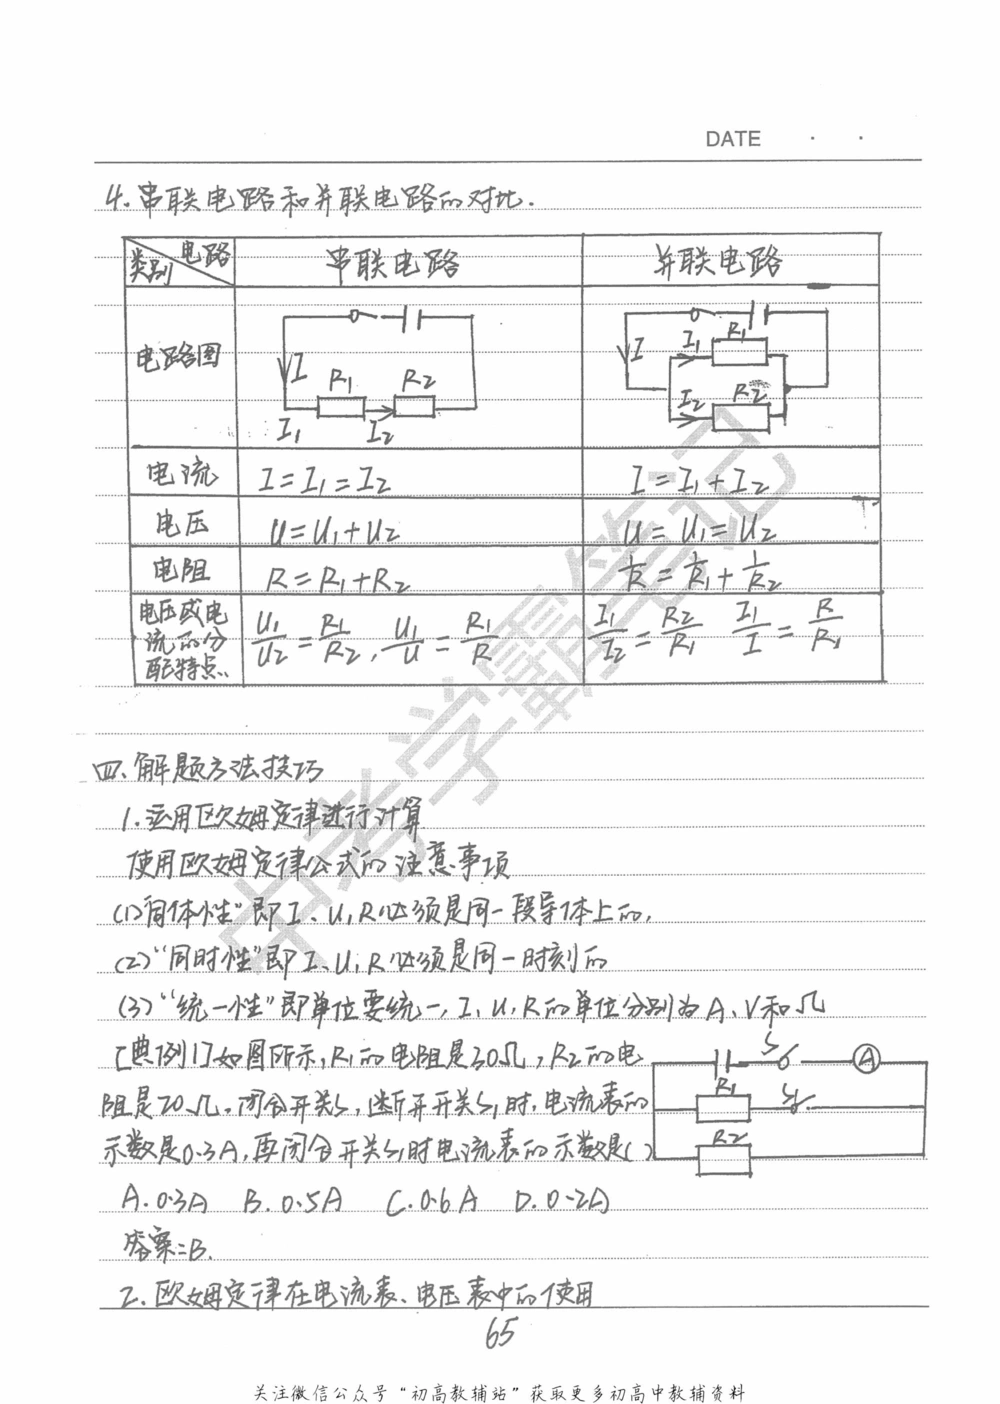 DATE · ·
4.串联电路和并联电路的对比.
类别 电路 串联电路 并联电路
电路图 I R1 R2 I1 I2 I I1 R1 I2 R2
电流 I=I1=I2 I=I1+I2
电压 U=U1+U2 U=U1=U2
电阻 R=R1+R2 1/R=1/R1+1/R2
电压或电流的分配特点. U1/U2=R1/R2, U1/U=R1/R I1/I2=R2/R1 I1/I=R/R1
四.解题方法技巧
1.运用欧姆定律进行计算
使用欧姆定律公式的注意事项
(1)"同体性"即I、U、R必须是同一段导体上的,
(2)"同时性"即I、U、R必须是同一时刻的
(3)"统一性"即单位要统一,I、U、R的单位分别为A、V和Ω
[典例1]如图所示,R1的电阻是30Ω,R2的电
阻是20Ω.闭合开关S,断开开关S1时,电流表的
示数是0.3A,再闭合开关S1时电流表的示数是( )
S A
R1 S1
R2
A.0.3A B.0.5A C.0.6A D.0.2A
答案:B.
2.欧姆定律在电流表、电压表中的使用
65
中考学霸笔记
关注微信公众号"初高教辅站"获取更多初高中教辅资料